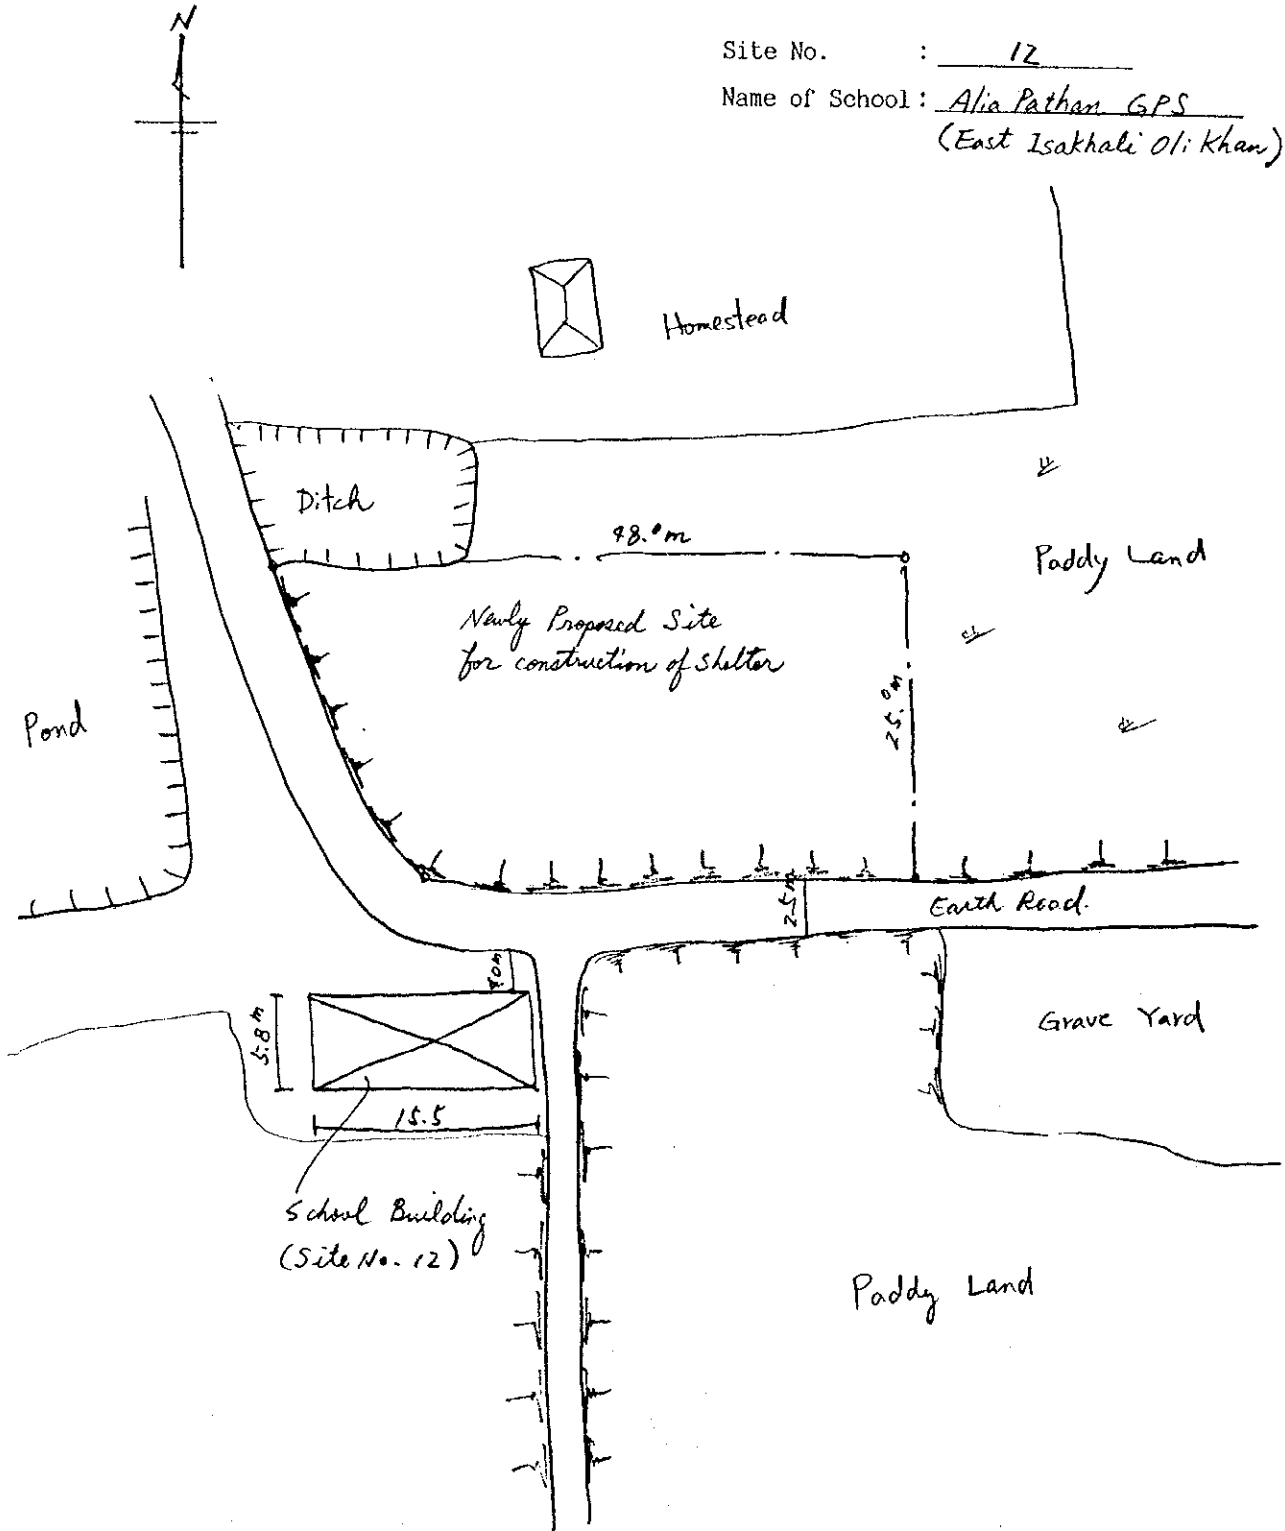 N
Site No. : 12
Name of School : Alia Pathan GPS
(East Isakhali Oli Khan)
Homestead
Ditch
48.0m
Paddy Land
Newly Proposed Site
for construction of Shelter
25.0m
Pond
2.5m
Earth Road.
5.8m
Grave Yard
15.5
School Building
(Site No. 12)
Paddy Land